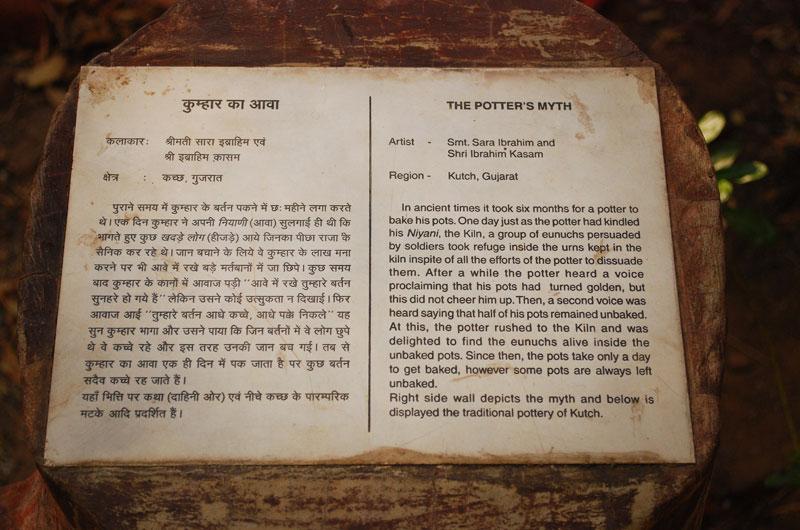 कुम्हार का आवा
कलाकार: श्रीमती सारा इब्राहिम एवं
श्री इब्राहिम क़ासम
क्षेत्र : कच्छ, गुजरात
पुराने समय में कुम्हार के बर्तन पकने में छ: महीने लगा करते
थे। एक दिन कुम्हार ने अपनी नियाणी (आवा) सुलगाई ही थी कि
भागते हुए कुछ खदड़े लोग (हीजड़े) आये जिनका पीछा राजा के
सैनिक कर रहे थे। जान बचाने के लिये वे कुम्हार के लाख मना
करने पर भी आवे में रखे बड़े मर्तबानों में जा छिपे। कुछ समय
बाद कुम्हार के कानों में आवाज पड़ी "आवे में रखे तुम्हारे बर्तन
सुनहरे हो गये हैं" लेकिन उसने कोई उत्सुकता न दिखाई। फिर
आवाज आई "तुम्हारे बर्तन आधे कच्चे, आधे पक्के निकले" यह
सुन कुम्हार भागा और उसने पाया कि जिन बर्तनों में वे लोग छुपे
थे वे कच्चे रहे और इस तरह उनकी जान बच गई। तब से
कुम्हार का आवा एक ही दिन में पक जाता है पर कुछ बर्तन
सदैव कच्चे रह जाते हैं।
यहाँ भित्ति पर कथा (दाहिनी ओर) एवं नीचे कच्छ के पारम्परिक
मटके आदि प्रदर्शित हैं।
THE POTTER'S MYTH
Artist - Smt. Sara Ibrahim and
Shri Ibrahim Kasam
Region - Kutch, Gujarat
In ancient times it took six months for a potter to
bake his pots. One day just as the potter had kindled
his Niyani, the Kiln, a group of eunuchs persuaded
by soldiers took refuge inside the urns kept in the
kiln inspite of all the efforts of the potter to dissuade
them. After a while the potter heard a voice
proclaiming that his pots had turned golden, but
this did not cheer him up. Then, a second voice was
heard saying that half of his pots remained unbaked.
At this, the potter rushed to the Kiln and was
delighted to find the eunuchs alive inside the
unbaked pots. Since then, the pots take only a day
to get baked, however some pots are always left
unbaked.
Right side wall depicts the myth and below is
displayed the traditional pottery of Kutch.